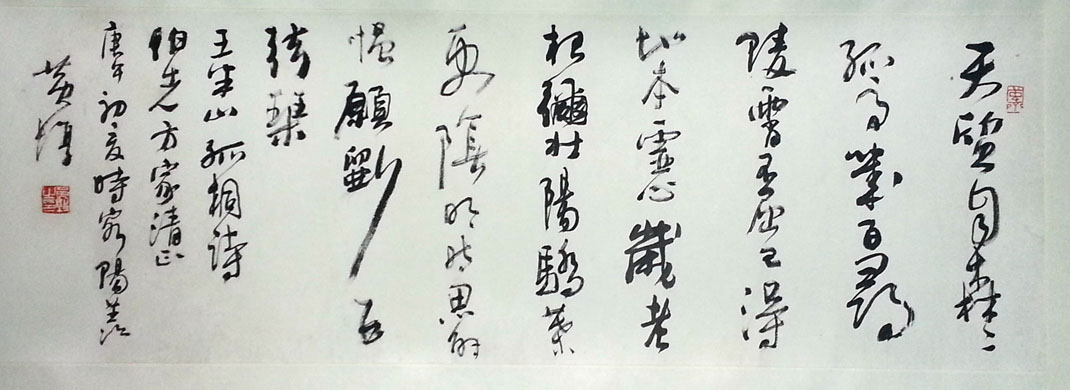 天質自森々
孤高幾百尋
陵霄不屈己得
地本虛心歲老
根彌壯陽驕葉
更陰明時思解
慍願斲五
弦琴
王半山孤桐詩
方家清正
庚午初夏時客陽羨
黃惇